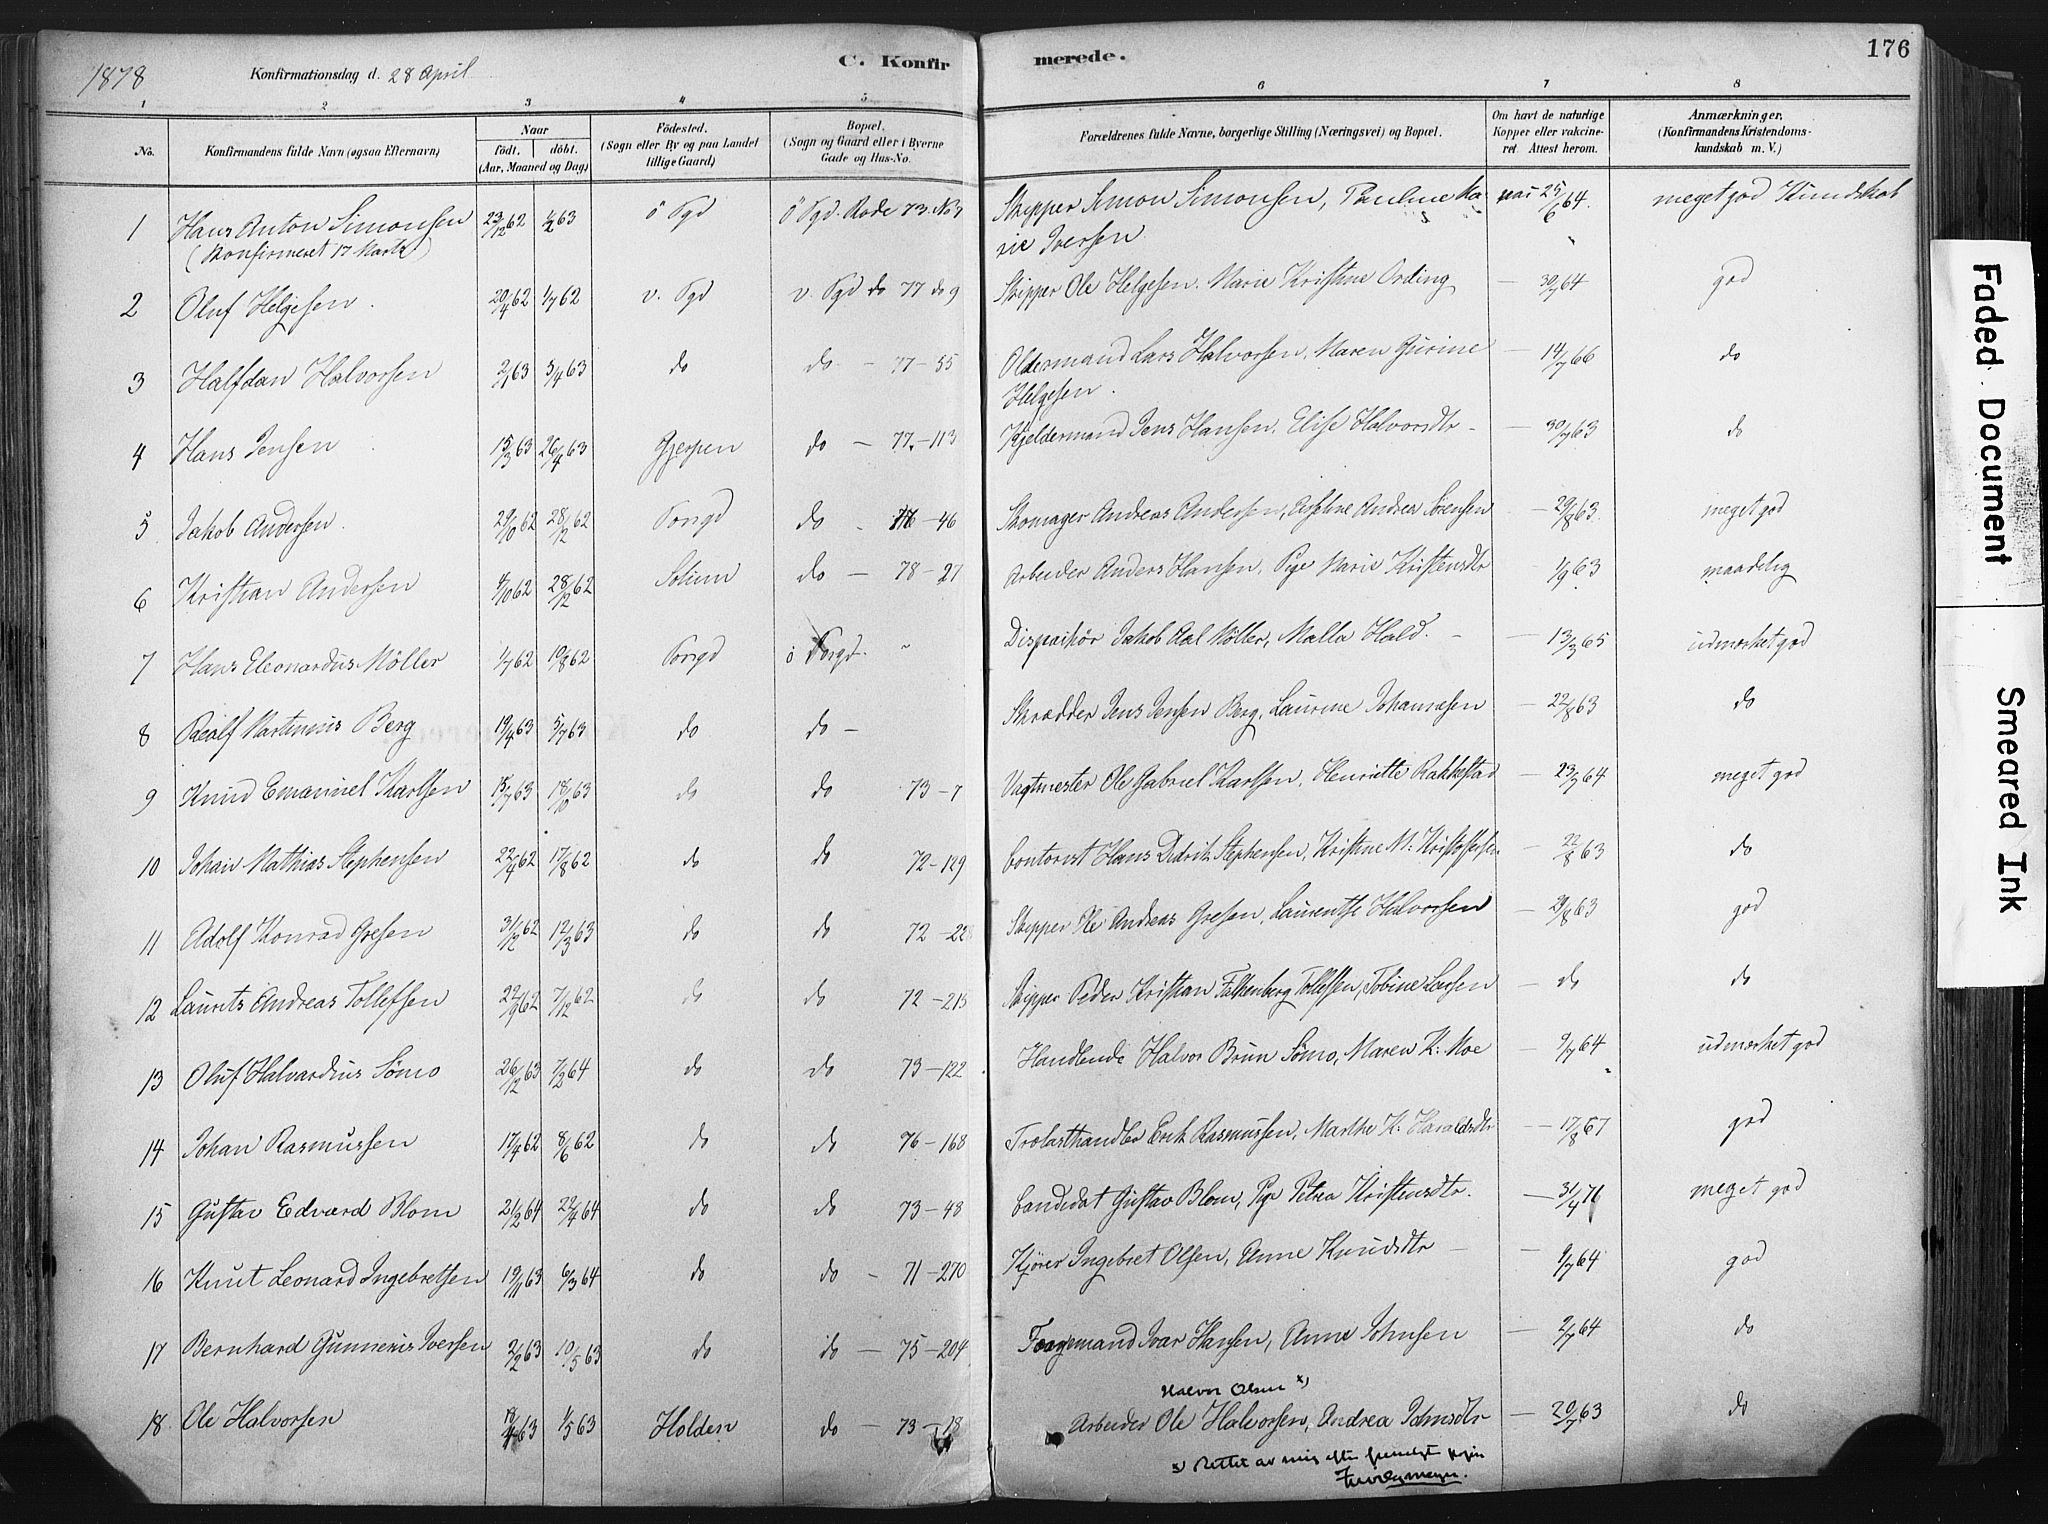 176
1878 Konfirmationsdag d. 28 April
C. Konfirmerede.
1 2 3 4 5 6 7 8
No.
Konfirmandens fulde Navn (ogsaa Efternavn)
Naar
födt. döbt.
(Aar, Maaned og Dag)
Födested.
(Sogn eller By og paa Landet
tillige Gaard)
Bopæl.
(Sogn og Gaard eller i Byerne
Gade og Hus-No.
Forældrenes fulde Navne, borgerlige Stilling (Næringsvei) og Bopæl.
Om havt de naturlige
Kopper eller vakcine-
ret. Attest herom.
Anmærkninger,
(Konfirmandens Kristendoms-
kundskab m. V.)
1 Hans Anton Simonsen 23/12 62 1/2 63 ö Pgd ö Pgd. Rode 73. No 7 Skipper Simon Simonsen, Pauline Ka- 25/6 64. meget god Kundskab
(Konfirmeret 17 Marts) rie Iversen
2 Oluf Helgesen 20/4 62 1/7 62 v. Pgd v. Pgd do 77 do 9 Skipper Ole Helgesen. Marie Kristine Ording — 30/7 64 god
3 Halfdan Halvorsen 2/1 63 5/4 63 do do – 77–55 Oldermand Lars Halvorsen, Maren Gurine — 14/7 66 do
Helgesen.
4 Hans Jensen 15/3 63 26/4 63 Gjerpen do – 77–113 Kjeldermand Jens Hansen. Elise Halvorsdtr — 30/7 63 do
5 Jakob Andersen. 29/10 62 28/12 62 Porsgd do – 46 Skomager Andreas Andersen, Andrea Sörensen — 29/8 63. meget god
6 Kristian Andersen 4/10 62 28/12 62 Solum do – 78–27 Arbeider Anders Hansen, Pige Marie Kristensdtr 1/9 63 maadelig
7 Hans Eleonardus Möller 1/7 62 10/8 62 Porsgd ö Porsgd. Dispaschör Jakob Aal Möller, Malla Hald. — 13/3 65 udmærket god
8 Rolf Martinius Berg 19/4 63 5/7 63 do do – Skrædder Jens Jensen Berg, Laurine Johannesen — 22/8 63 do
9 Knud Emanuel Karlsen 15/7 63 18/10 63 do do 73–7 Vagtmester Ole Gabriel Karlsen, Henriette Rakkestad — 23/7 64 meget god
10 Johan Mathias Stephensen 22/4 62 17/8 62 do do 72–129 Contorist Hans Didrik Stephensen, Kristine M. Kristoffersen — 22/8 63 do
11 Adolf Konrad Gresen 31/12 62 12/3 63 do do 72–228 Skipper Ole Andreas Gresen, Laurentse Halvorsen — 29/8 63 god
12 Laurits Andreas Tollefsen 22/9 62 7/12 62 do do 72–215 Skipper Peder Kristian Falkenberg Tollefsen, Tobine Larsen — do do
13 Oluf Halvardius Sömo 26/12 63 7/2 64 do do 73–122 Handlende Halvor Brun Sömo, Maren K. Moe — 9/7 64 udmærket god
14 Johan Rasmussen 17/4 62 8/6 62 do do 76–168 Trelasthandler Erik Rasmussen, Marthe K. Haraldsdtr — 17/8 67 god
15 Gustav Edvard Blom 21/2 64 22/4 64 do do 73–48 Candidat Gustav Blom, Pige Petra Kristensdtr. — 31/4 71 meget god
16 Knut Leonard Ingebretsen 19/11 63 6/3 64 do do – 71–270 Kjörer Ingebret Olsen, Anne Knudsdtr — 9/7 64 god
17 Bernhard Gunnerius Iversen 2/2 63 10/5 63 do do – 75–204 Ivar Hansen, Anne Johnsen — 2/7 64 do
Halvor Olsen x)
18. Ole Halvorsen 18/2 63 1/5 63 Holden do – 73–18 Arbeider Ole Halvorsen, Andrea Johnsdtr — 20/7 63 do
x) Rettet av mig efter
Faded Document Smeared Ink